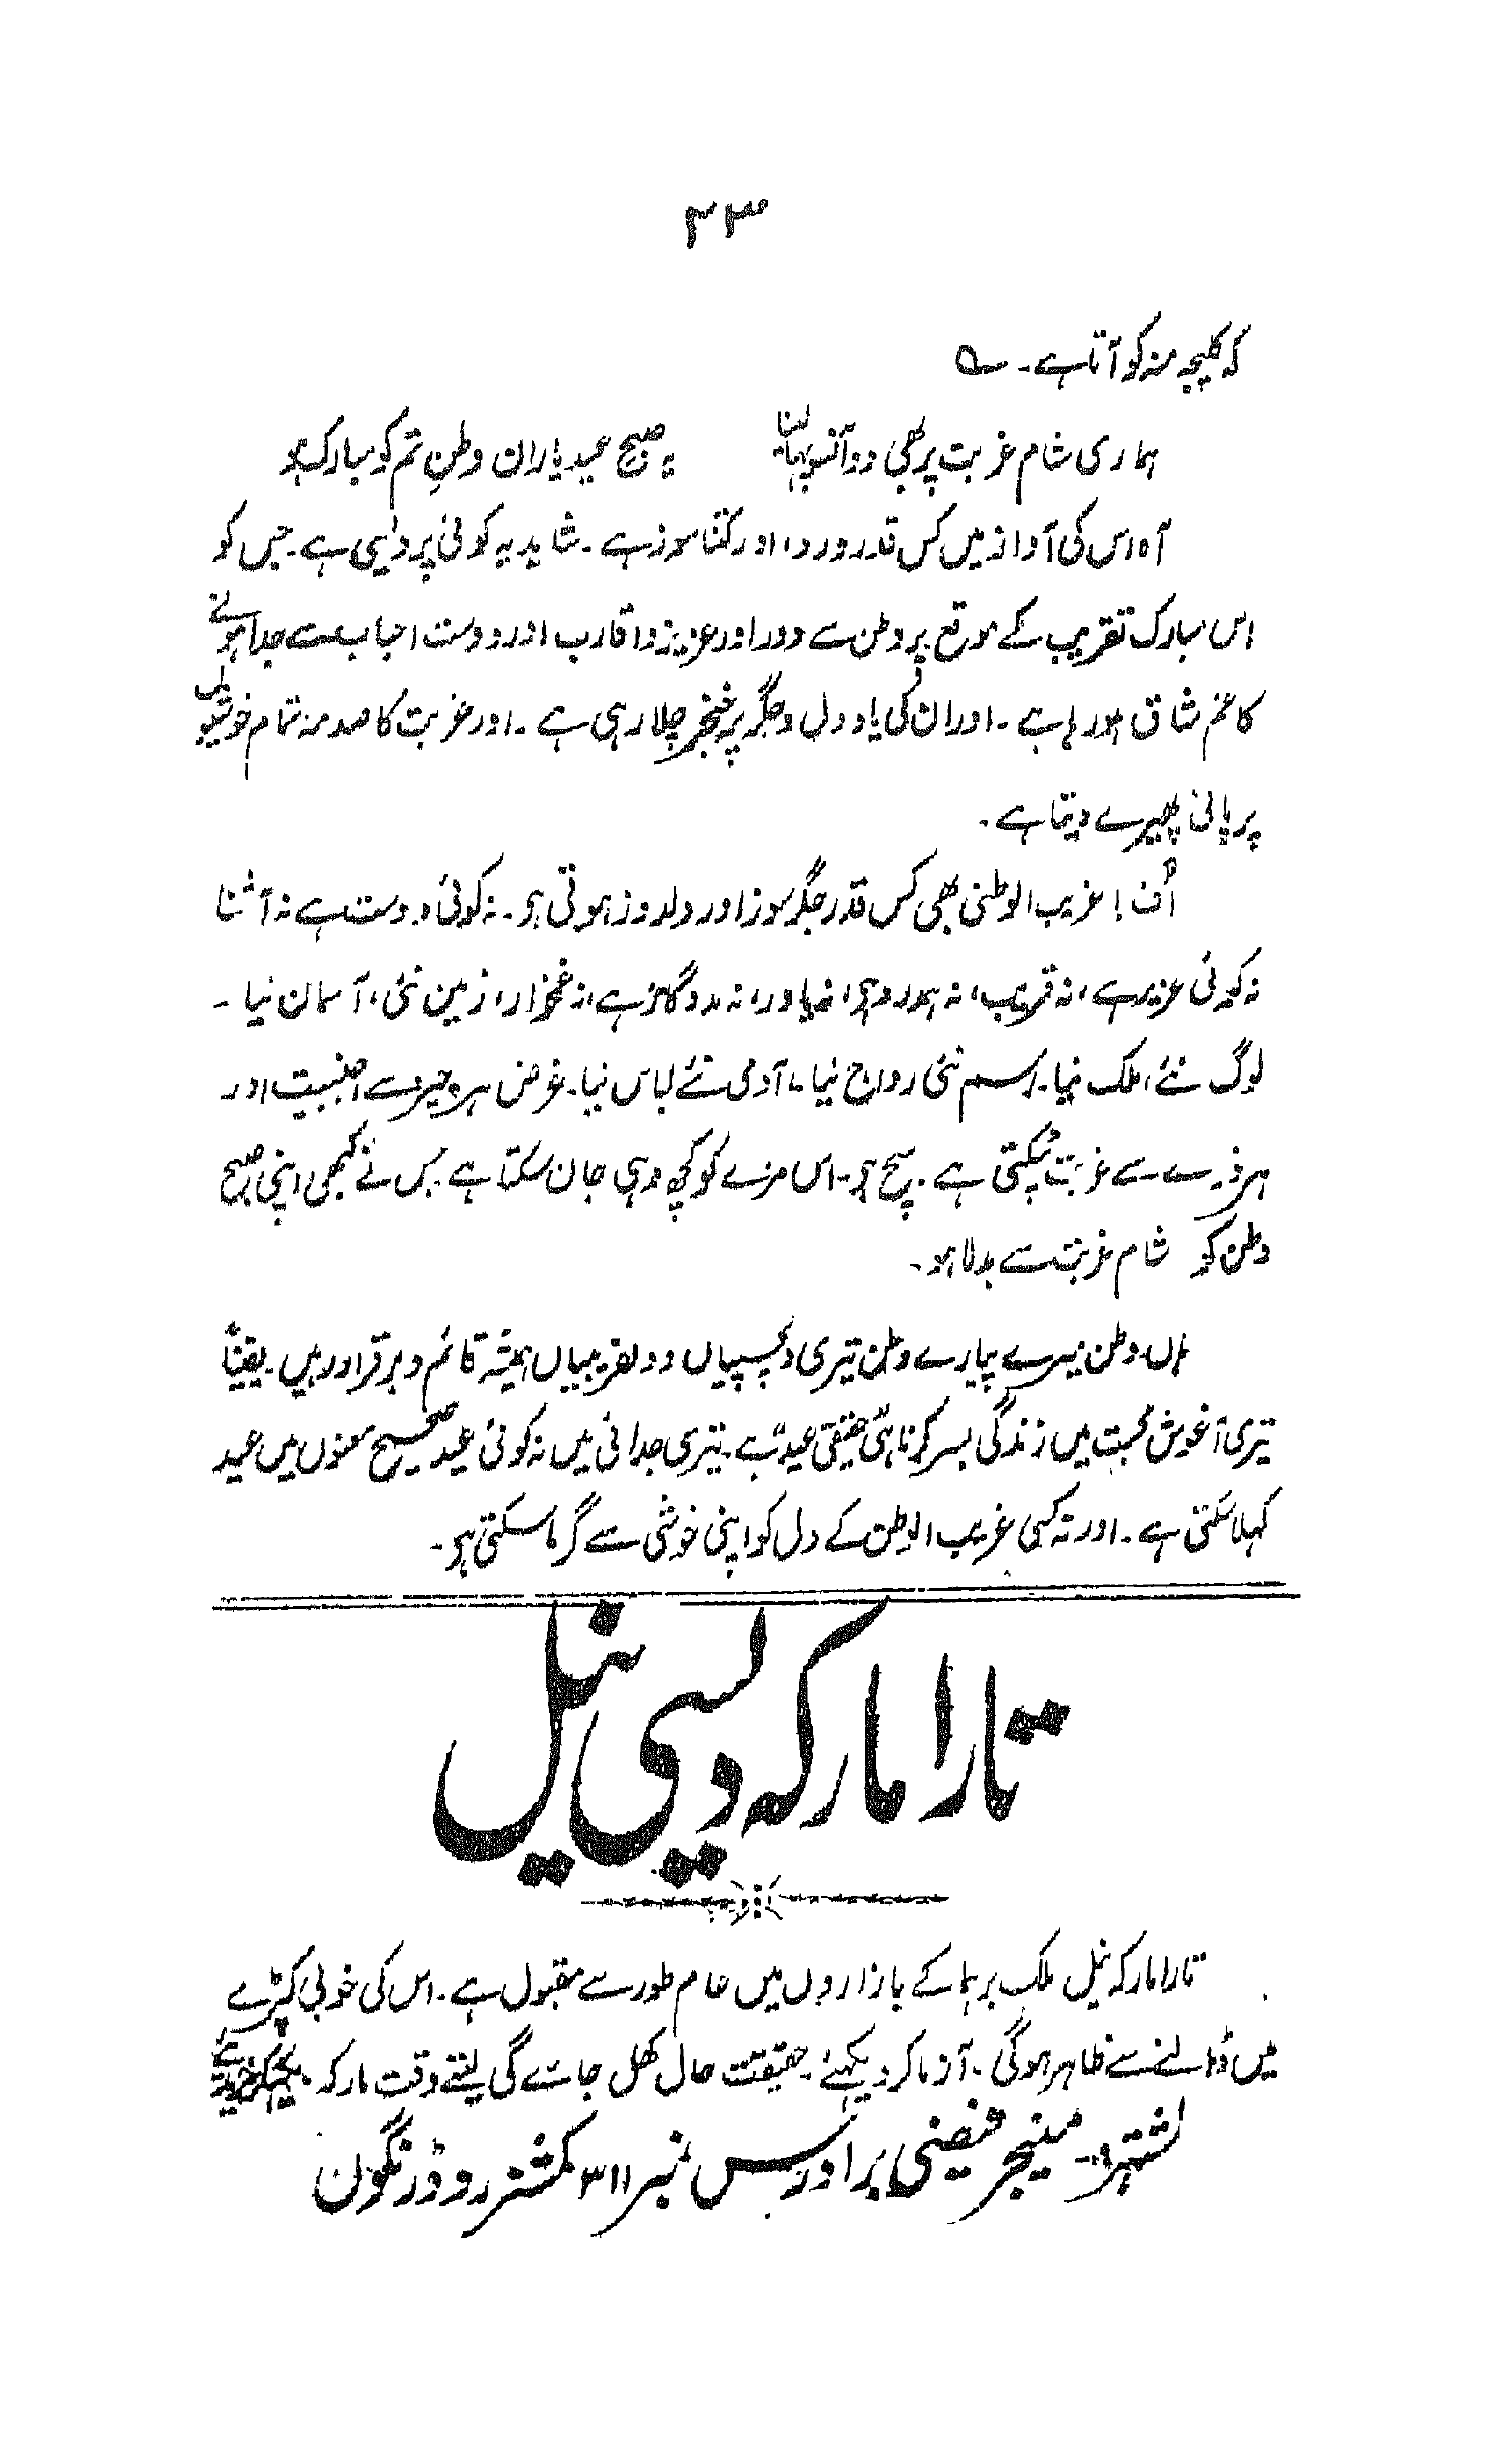 ۳۳
کہ کلیجہ منہ کو آتا ہے۔ ؎
ہماری شام غربت پر بھی دو آنسو بہا لینا یہ صبح عید یاران وطنِ تم کو مبارک ہو
آہ اس کی آواز میں کس قدر درد، اور کتنا سوز ہے۔ شاید یہ کوئی پردیسی ہے۔ جس کو
اس مبارک تقریب کے موقع پر وطن سے دور اور عزیز و اقارب اور دوست احباب سے جدا ہونے
کا غم شاق ہو رہا ہے۔ اور ان کی یاد دل و جگر پر خنجر چلا رہی ہے۔ اور غربت کا صدمہ تمام خوشیوں
پر پانی پھیرے دیتا ہے۔
اُف! غریب الوطنی بھی کس قدر جگر سوز اور دلدوز ہوتی ہو۔ نہ کوئی دوست ہے نہ آشنا
نہ کوئی عزیز ہے، نہ قریب، نہ ہمدرد ہو، نہ یاور، نہ مددگار ہے، نہ غمخوار، زمین نئی، آسمان نیا۔
لوگ نئے، ملک نیا۔ رسم نئی رواج نیا، آدمی نئے لباس نیا۔ غرض ہر چیز سے اجنبیت اور
ہر ذرے سے غربت ٹپکتی ہے۔ سچ ہو۔ اس مزے کو کچھ وہی جان سکتا ہے جس نے کبھی اپنی صبح
وطن کو شام غربت سے بدلا ہو۔
ہاں وطن میرے پیارے وطن تیری دلچسپیاں و دلفریبیاں ہمیشہ قائم و برقرار رہیں۔ یقیناً
تیری آغوش محبت میں زندگی بسر کرنا ہی حقیقی عید ہے۔ تیری جدائی میں نہ کوئی عید صحیح معنوں میں عید
کہلا سکتی ہے۔ اور نہ کسی غریب الوطن کے دل کو اپنی خوشی سے گرما سکتی ہو۔
تارا مارکہ دیسی نیل
تارا مارکہ نیل ملک برہما کے بازاروں میں عام طور سے مقبول ہے۔ اس کی خوبی کپڑے
میں ڈالنے سے ظاہر ہوگی۔ آزما کر دیکھئے۔ حقیقت حال کھل جائے گی لیتے وقت مارکہ
المشتہر۔ مینیجر فیضی برادرس نمبر ۳۱۱ کمشنر روڈ رنگون